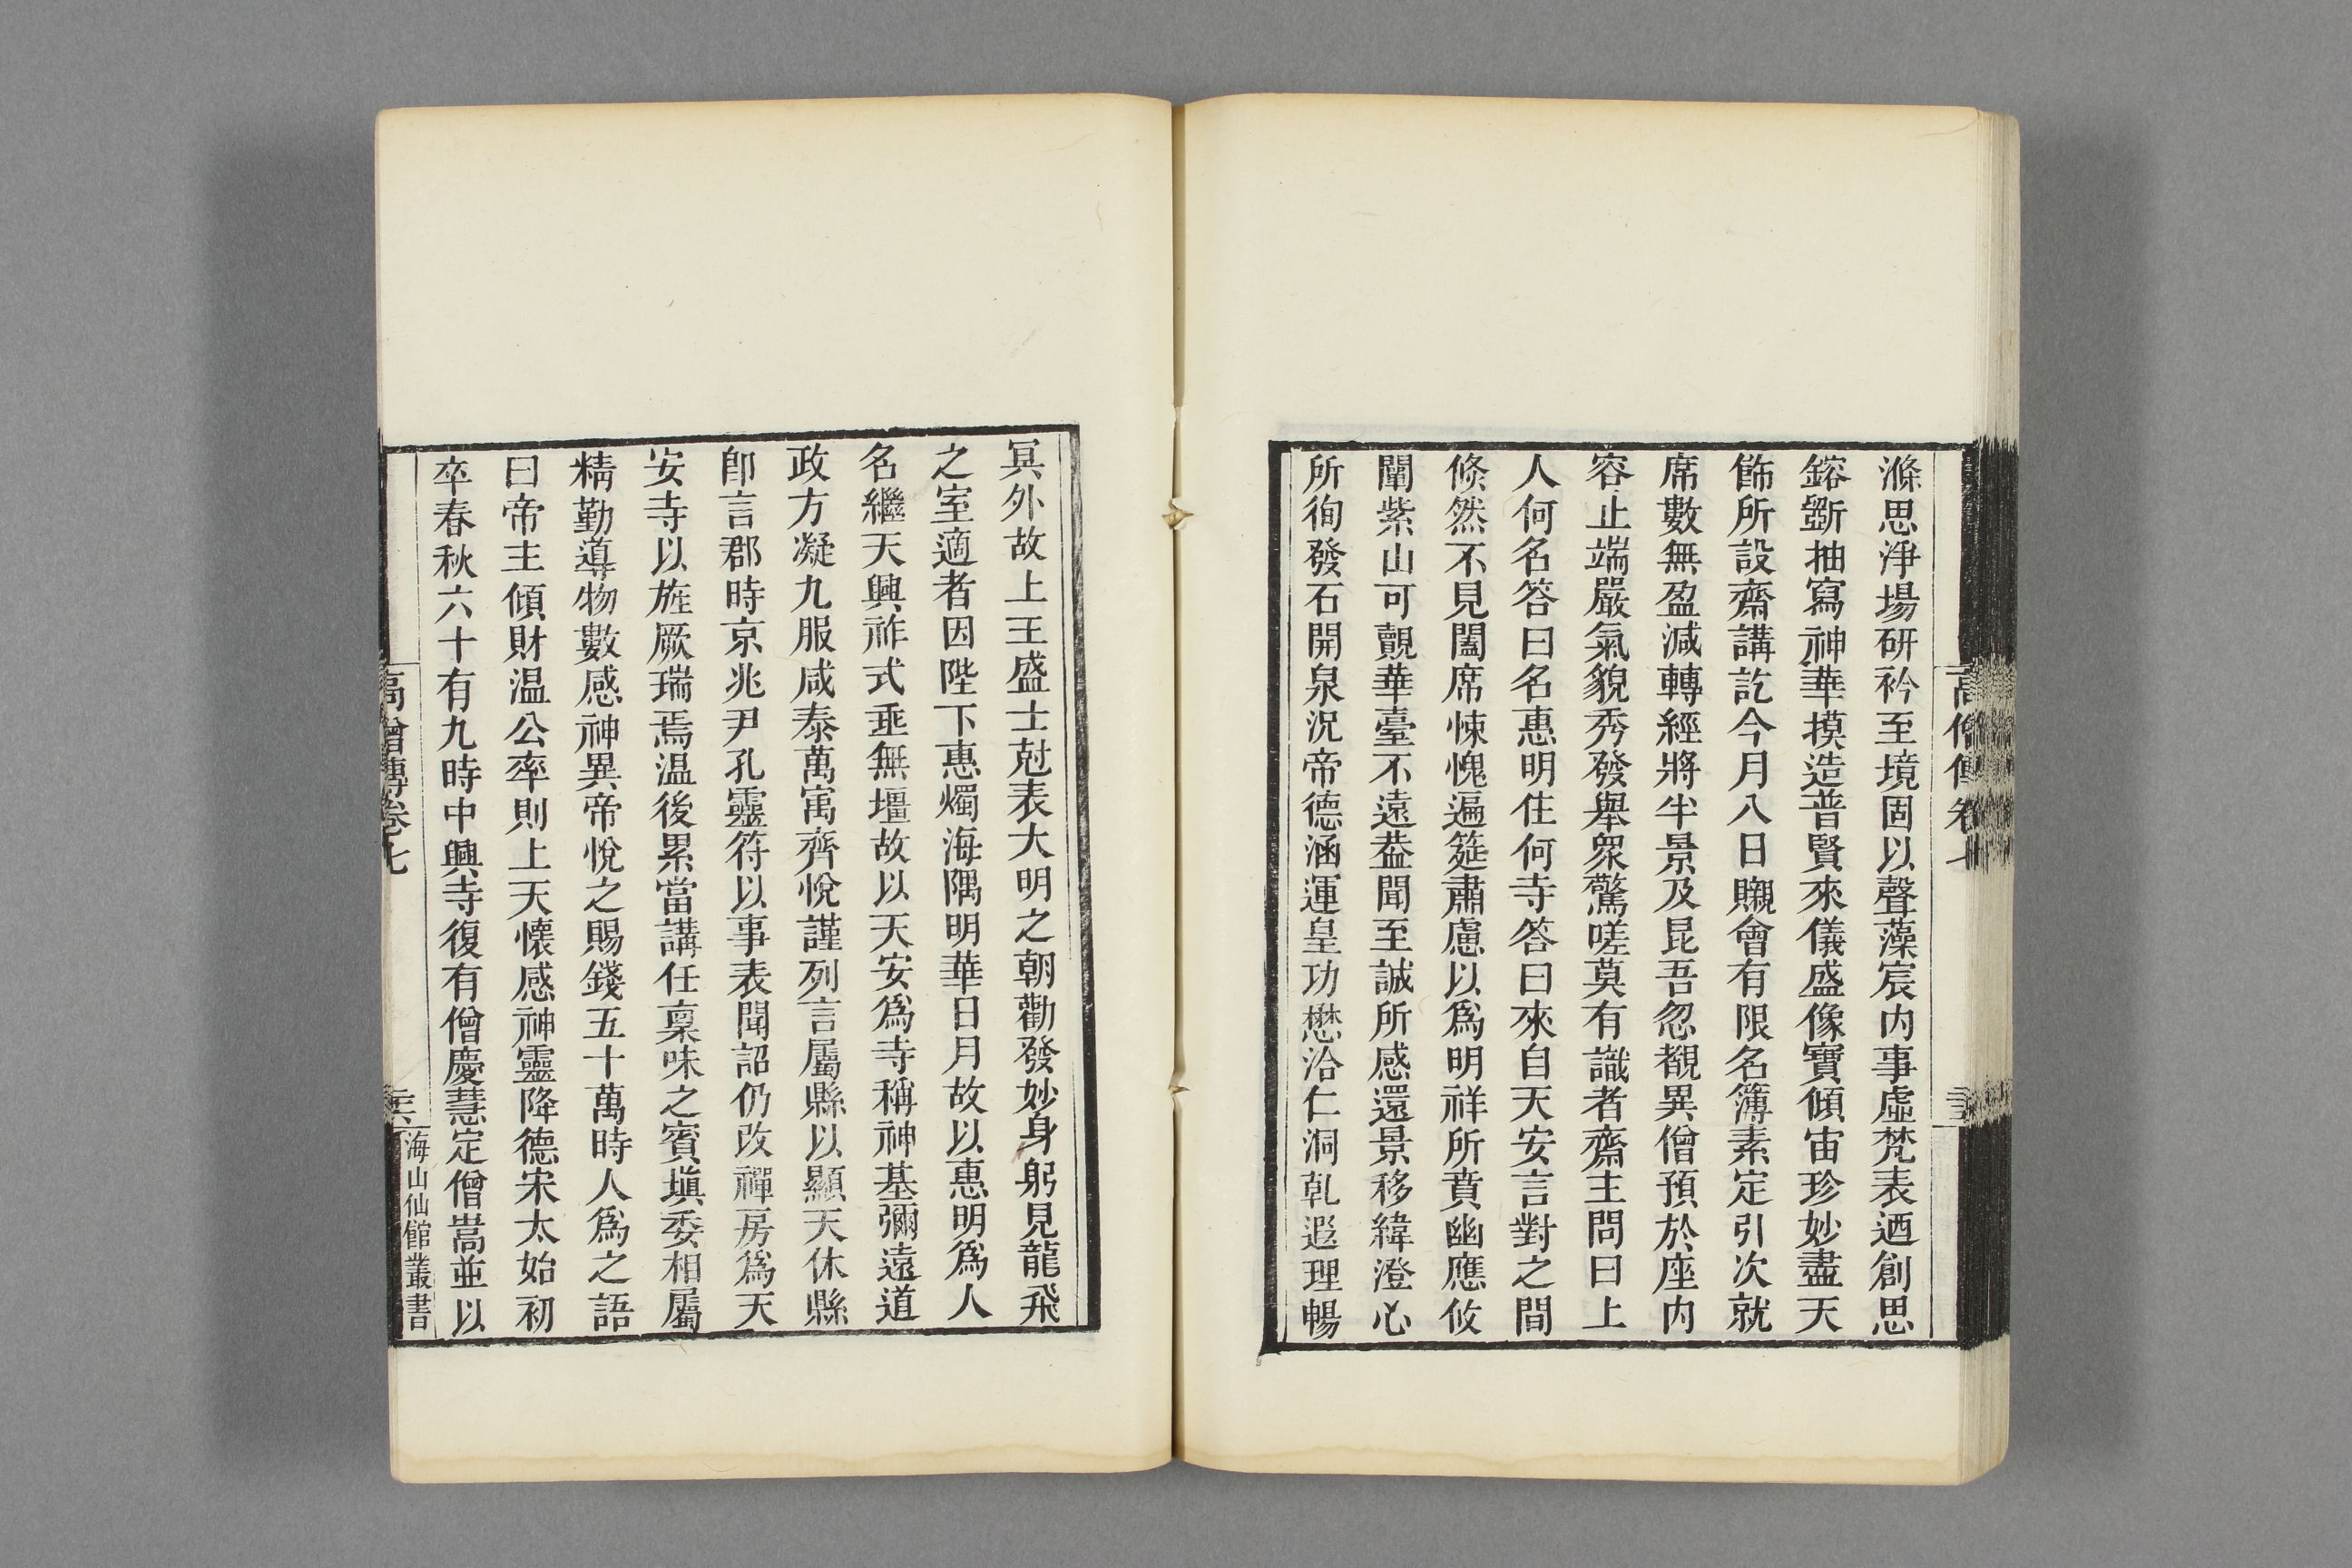 滌思淨場硏衿至境固以聲藻宸内事虛梵表迺創思
鎔斲抽寫神華摸造普賢來儀盛像寶傾宙珍妙盡天
飾所設齋講訖今月八日矙會有限名簿素定引次就
席數無盈減轉經將半景及昆吾忽覩異僧預於座内
容止端嚴氣貌秀發舉衆驚嗟莫有識者齋主問曰上
人何名答曰名惠明住何寺答曰來自天安言對之間
倏然不見闔席悚愧遍筵肅慮以爲明祥所賁幽應攸
闡紫山可覿華臺不遠葢聞至誠所感還景移緯澄心
所徇發石開泉況帝德涵運皇功懋洽仁洞乹遐理暢
冥外故上王盛士尅表大明之朝勸發妙身躬見龍飛
之室適者因陛下惠燭海隅明華日月故以惠明爲人
名繼天興祚式垂無壃故以天安爲寺稱神基彌遠道
政方凝九服咸泰萬㝢齊悅謹列言屬縣以顯天休縣
卽言郡時京兆尹孔靈符以事表聞詔仍改禪房爲天
安寺以旌厥瑞焉温後累當講任稟味之賓塡委相屬
精勤導物數感神異帝悅之賜錢五十萬時人爲之語
曰帝主傾財温公率則上天懷感神靈降德宋太始初
卒春秋六十有九時中興寺復有僧慶慧定僧嵩並以
高僧傳卷七
海山仙館叢書